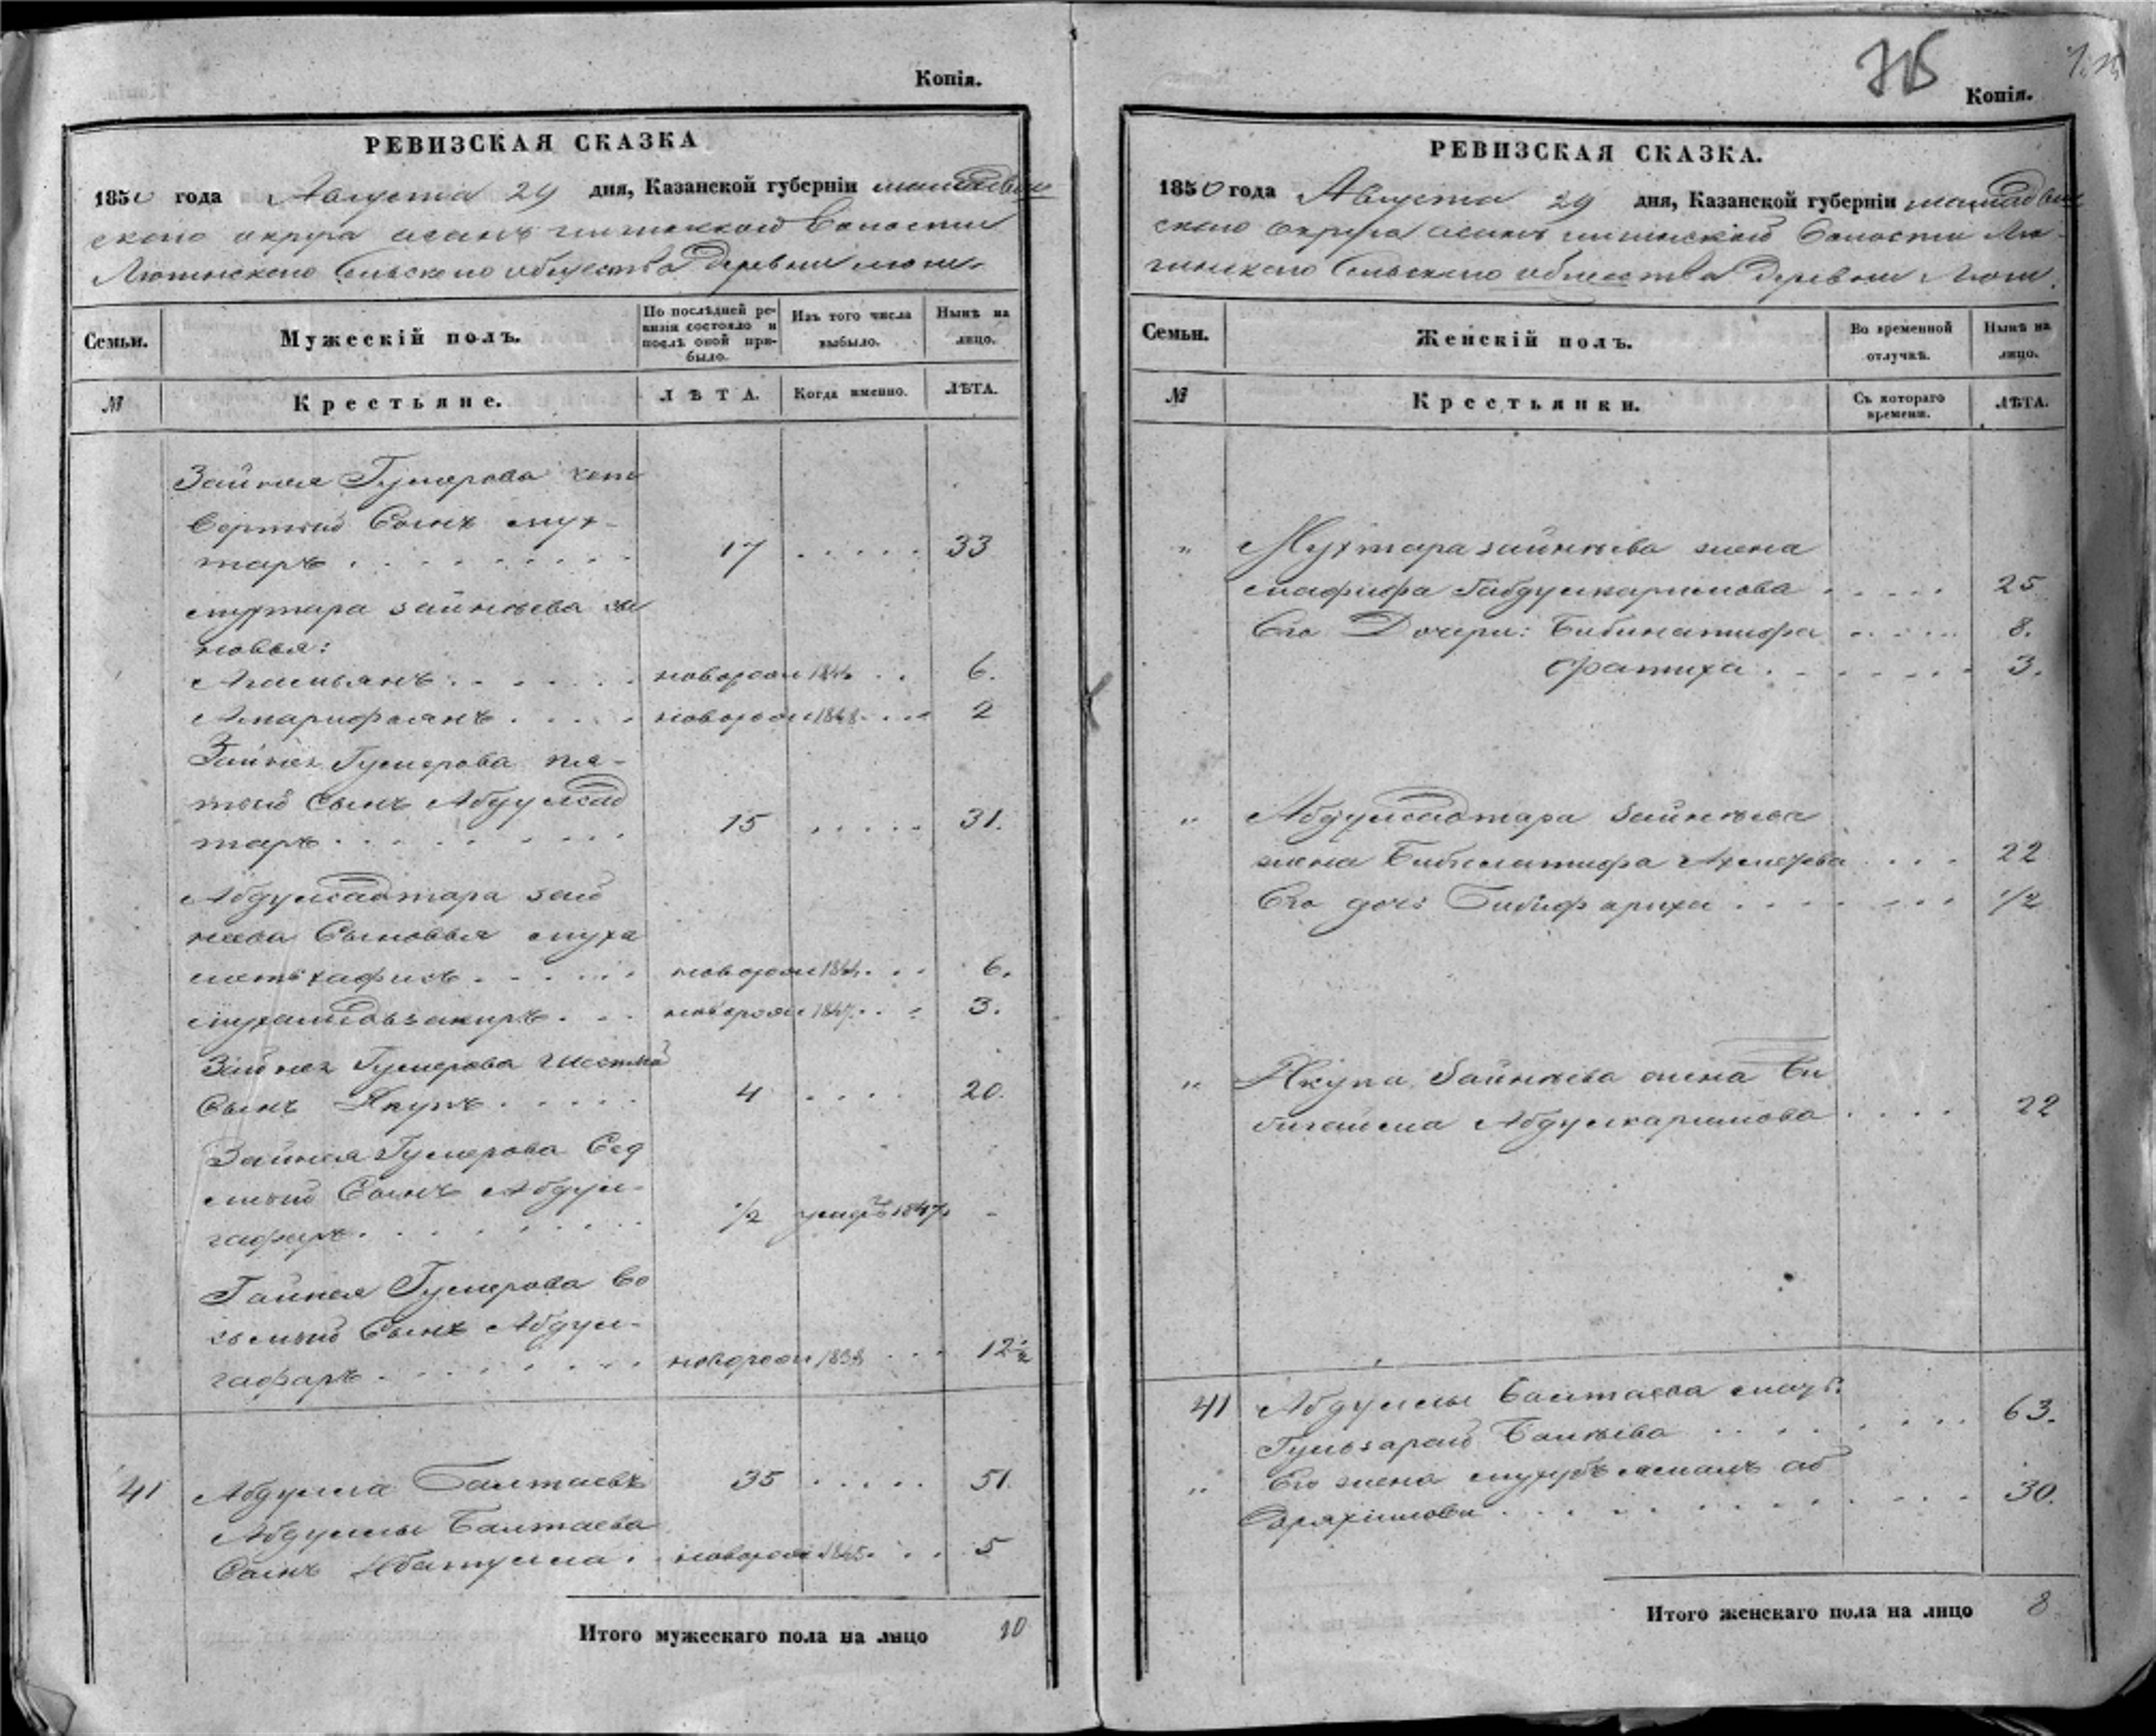 Копія.
РЕВИЗСКАЯ СКАЗКА
1850 года Августа 29 дня, Казанской губерніи мамадыш
скаго округа волости
Сельскаго общества деревни
Семьи.
Мужескій полъ.
По послѣдней ре-
визіи состояло и
послѣ оной при-
было.
Изъ того числа
выбыло.
Нынѣ на
лицо.
№
Крестьяне.
ЛѢТА.
Когда именно.
ЛѢТА.
Зайнея Гумерова чет
вертый Сынъ мух-
таръ . . . . . . . . 17 . . . . . 33
мухтара зайнеева сы
новья:
. . . . . новорож 1844 . . 6.
. . . . новорож 1848 . . . 2
Зайнея Гумерова пя-
тый Сынъ Абдулсад
таръ . . . . . . . 15 . . . . . 31.
Абдулсадтара зай
неева Сыновья муха
метьхафизъ . . . . . новорож 1844 . . . 6.
мухамедьзакиръ . . . новорож 1847 . . . 3.
Зайнея Гумерова шестый
Сынъ Якупъ . . . . . 4 . . . . 20.
Зайнея Гумерова Сед
мый Сынъ Абдул-
гафаръ . . . . . . . 1/2 умеръ 1847 -
Гайнея Гумерова Во
сьмый Сынъ Абдул-
гафаръ . . . . . . . новорож 1838 . . . 12 1/2
41 Абдулла Балтаевъ 35 . . . . . 51.
Абдуллы Балтаева
Сынъ Ибатулла . . новорож 1845 . . . 5
Итого мужескаго пола на лицо 10
Копія.
РЕВИЗСКАЯ СКАЗКА.
1850 года Августа 29 дня, Казанской губерніи мамадыш
скаго округа волости
Сельскаго общества деревни
Семьи.
Женскій полъ.
Во временной
отлучкѣ.
Нынѣ на
лицо.
№
Крестьянки.
Съ котораго
времени.
ЛѢТА.
" Мухтара зайнеева жена
Габдулкаримова . . . . . 25
Его Дочери: . . . . . 8.
Фатиха . . . . . . . 3.
" Абдулсадтара зайнеева
жена Бибилатифа . . . . 22
Его дочь Бибифариха . . . . . . . 1/2
" Якупа Зайнеева жена Би
Абдулкаримова . . . . 22
41 Абдуллы Балтаева
. . . . . . . . 63.
" Его жена аб
. . . . . . . . . . 30.
Итого женскаго пола на лицо 8